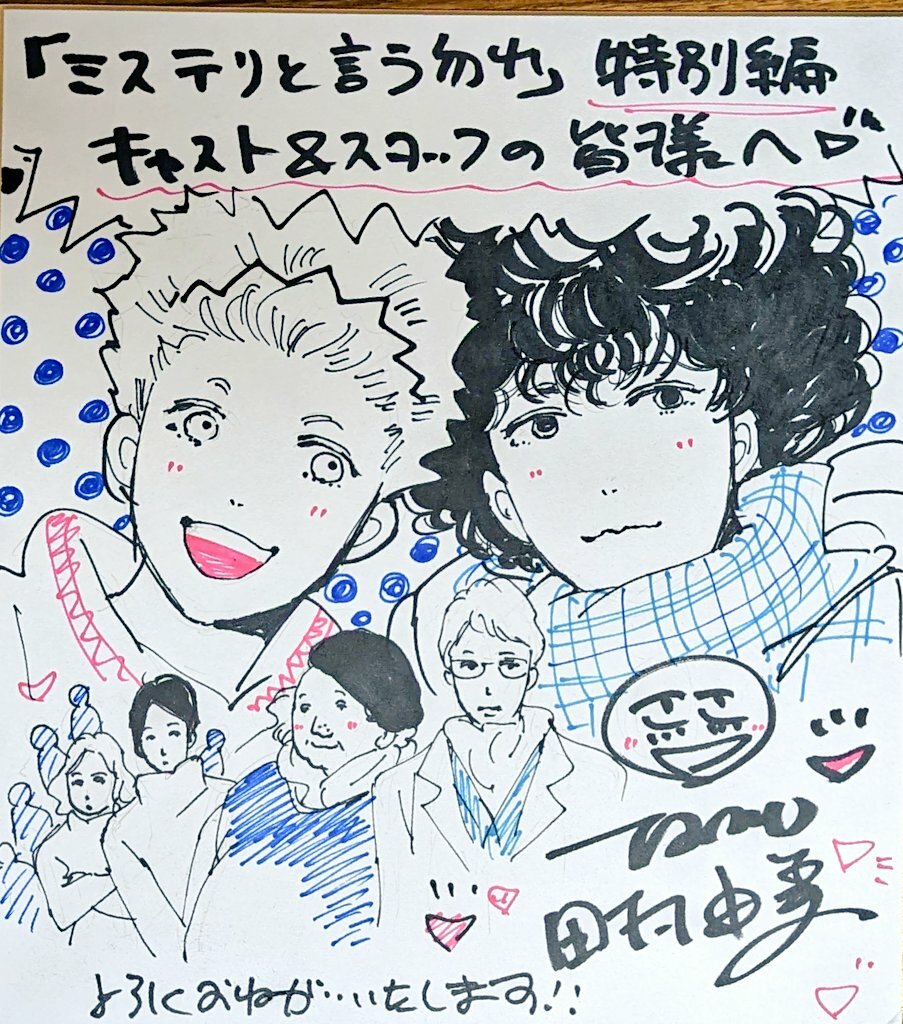 「ミステリと言う勿れ」特別編
キャスト&スタッフの皆様へ
Tamu
田村由美
よろしくおねがい…いたします!!